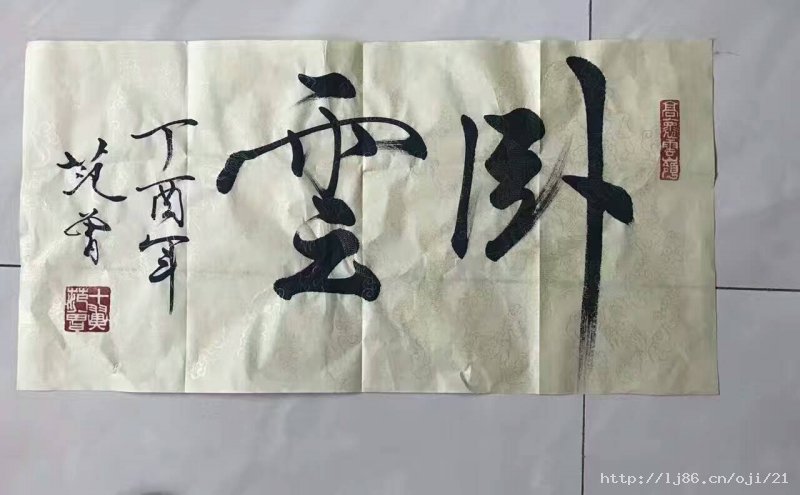 卧雲
丁酉年
范曾
十翼
范曾
http://lj86.cn/oji/21